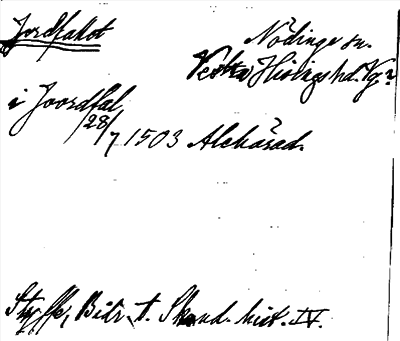 Jordfallet
Nödinge sn.
Vestra Hisings hd. Vg?
i Joordfal
28/7 1503 Alehärad.
Styffe, Bidr. t. Skand. hist. IV.